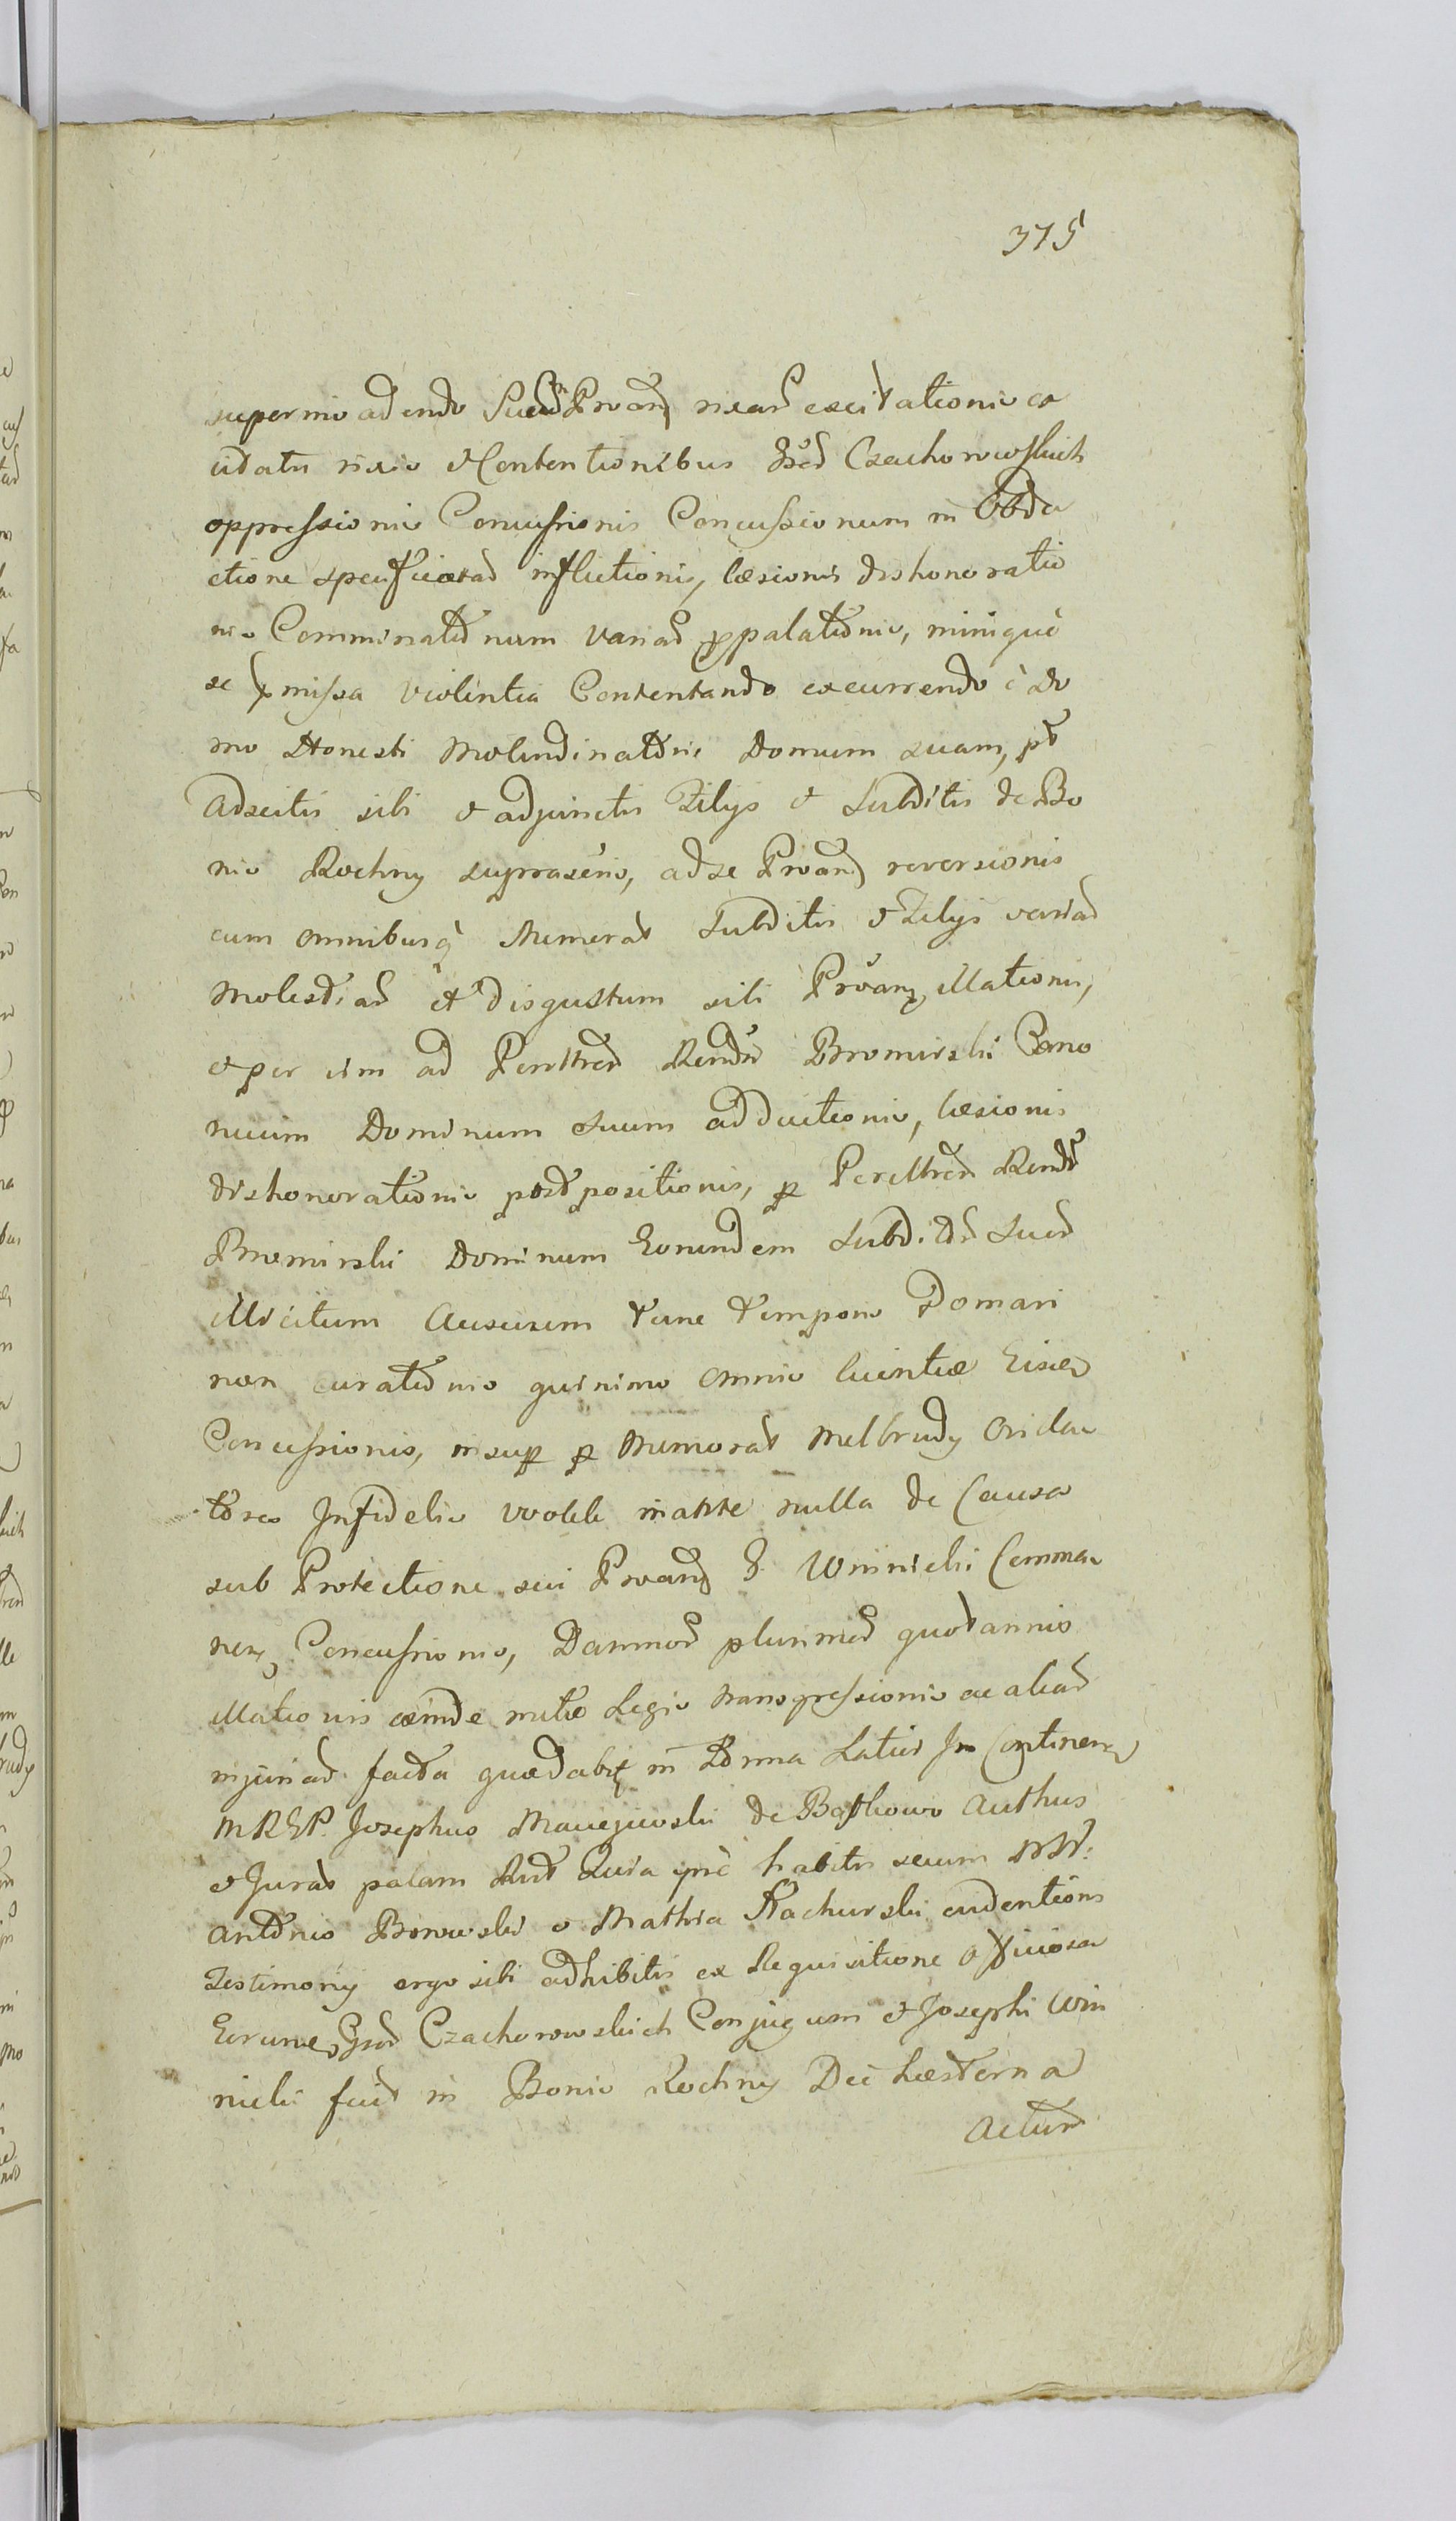 375
superinvadendo Prvans rixar excitationis ex
citatis rixis et Contentionibus Gsod Czachorowskich
oppressionis Concussionis Concussionum in Obdu
ctione specificatar inflictionis, læsionis dishonoratio
nis Comminationum variar ppalationis, minique
se pmissa violentia Contentando excurrendo è Do
mo Honesti Molendinatoris Domum suam,
adscitis sibi et adjunctis Filijs et Subditis de Bo
nis Rochny suprascris, ad se Prvans reversionis
cum omnibusq Memorat Subditis et Filijs variar
Molestiar et disgustum sibi Prvans illationis,
et per eum ad Perilltrem Rendum Bromirski Cano
nicum Dominum suum adductionis, læsionis
dishonorationis postpositionis, p Perilltrem Rendum
Bromirski Dominum Eorundem Subditor Suor
illicitum Ausurum tunc temporis Domari
non curationis quinimo omnis licentiæ Eisdem
Concussionis, insup p Memorat Melbrudy Orida
tores Infidelis wolde nulla de Causa
sub Protectione sui Prvans G. Winnicki Comma
nen, Concussionis, Damnor plurimor quotannis
illationis exinde mitio Legis transgressionis ac aliar
injuriar facta quædabit in Forma Latius In Continen
MRGP. Josephus Maciejewski de Bathowo Authus
et Jurat palam Rnt Quia ipse habitis secum NN:
Antonio Borowski et Mathia Kachurski evidentioris
Testimonij ergo sibi adhibitis ex Requisitione officiosa
Eorund Gsod Czachorowskich Conjugum et Josephi Win
nicki fuit in Bonis Rochny Die hesterna
Actum